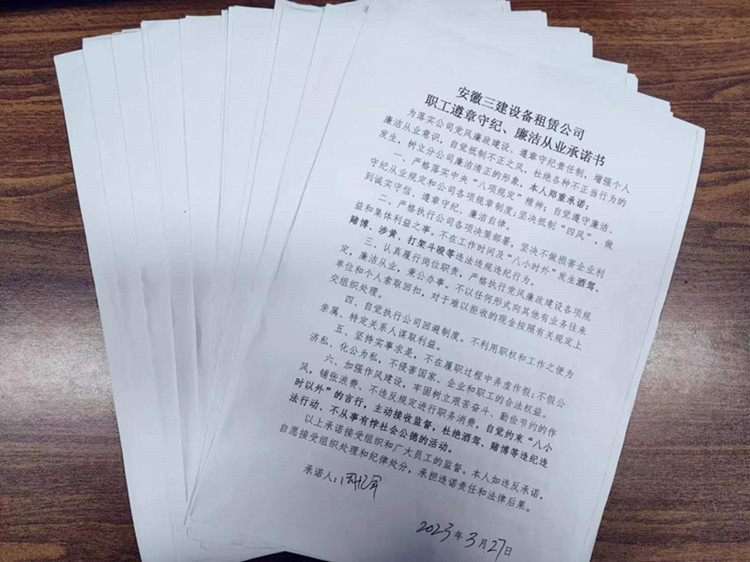 安徽三建设备租赁公司
职工遵章守纪、廉洁从业承诺书
为落实公司党风廉政建设、遵章守纪责任制，增强个人
廉洁从业意识，自觉抵制不正之风，杜绝各种不正当行为的
发生，树立分公司廉洁清正的形象，本人郑重承诺：
一、严格落实中央“八项规定”精神；自觉遵守廉洁、
守纪从业规定和公司各项规章制度；坚决抵制“四风”，做
到诚实守信、遵章守纪、廉洁自律。
二、严格执行公司各项决策部署，坚决不做损害企业利
益和集体利益之事。不在工作时间及“八小时外”发生酒驾、
赌博、涉黄、打架斗殴等违法违规违纪行为。
三、认真履行岗位职责，严格执行党风廉政建设各项规
定，廉洁从业，秉公办事。不以任何形式向其他有业务往来
单位和个人索取回扣，对于难以拒收的现金按照有关规定上
交组织处理。
四、自觉执行公司回避制度，不利用职权和工作之便为
亲属、特定关系人谋取利益。
五、坚持实事求是，不在履职过程中弄虚作假；不假公
济私、化公为私，不侵害国家、企业和职工的合法权益。
六、加强作风建设，牢固树立艰苦奋斗、勤俭节约的作
风，铺张浪费、不违反规定进行职务消费，自觉约束“八小
时以外”的言行，主动接收监督，杜绝酒驾、赌博等违纪违
法行动、不从事有悖社会公德的活动。
以上承诺接受组织和广大员工的监督。本人如违反承诺，
自愿接受组织处理和纪律处分，承担违诺责任和法律后果。
承诺人：
2023年3月27日